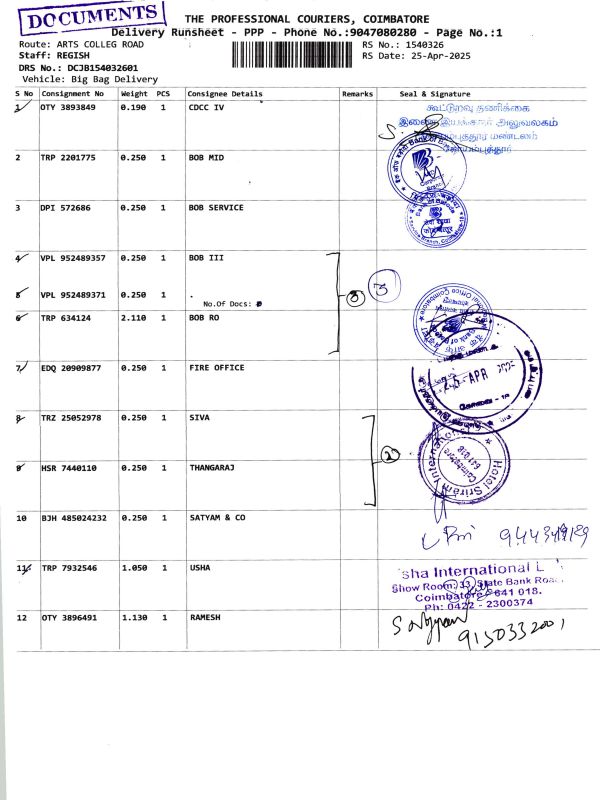 DOCUMENTS
THE PROFESSIONAL COURIERS, COIMBATORE
Delivery Runsheet - PPP - Phone No.:9047080280 - Page No.:1
Route: ARTS COLLEG ROAD RS No.: 1540326
Staff: REGISH RS Date: 25-Apr-2025
DRS No.: DCJB154032601
Vehicle: Big Bag Delivery
S No Consignment No Weight PCS Consignee Details Remarks Seal & Signature
1 OTY 3893849 0.190 1 CDCC IV
கூட்டுறவு தணிக்கை
இணை இயக்குநர் அலுவலகம்
மண்டலம்
2 TRP 2201775 0.250 1 BOB MID
Bank of Baroda
3 DPI 572686 0.250 1 BOB SERVICE
Bank of Baroda
4 VPL 952489357 0.250 1 BOB III
5 VPL 952489371 0.250 1 .
No.Of Docs:
3 3
6 TRP 634124 2.110 1 BOB RO
7 EDQ 20909877 0.250 1 FIRE OFFICE
25 APR
8 TRZ 25052978 0.250 1 SIVA
2
9 HSR 7440110 0.250 1 THANGARAJ
Hotel Sriram International
Coimbatore
641 018
10 BJH 485024232 0.250 1 SATYAM & CO
11 TRP 7932546 1.050 1 USHA
sha International L
Show Room: 33, State Bank Road,
Coimbatore - 641 018.
Ph: 0422 - 2300374
12 OTY 3896491 1.130 1 RAMESH
9150332001